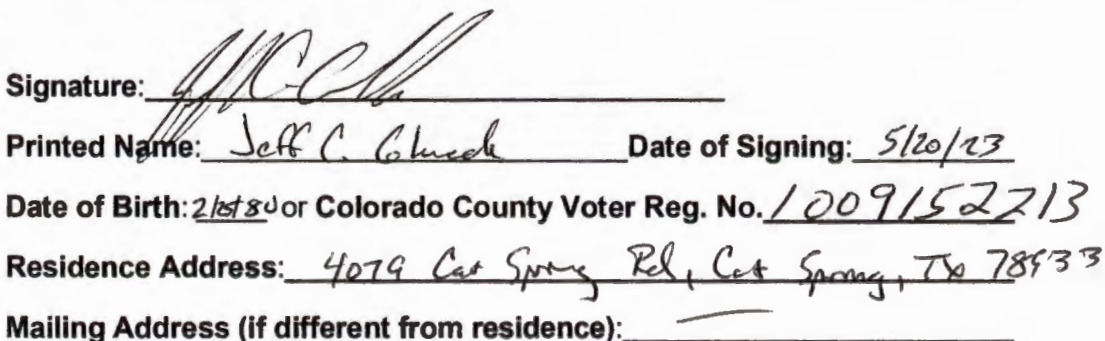 Signature:
Printed Name: Jeff C. Date of Signing: 5/20/23
Date of Birth: or Colorado County Voter Reg. No. 1009152213
Residence Address: 4079 Cat Spring Rd, Cat Spring, TX 78933
Mailing Address (if different from residence):